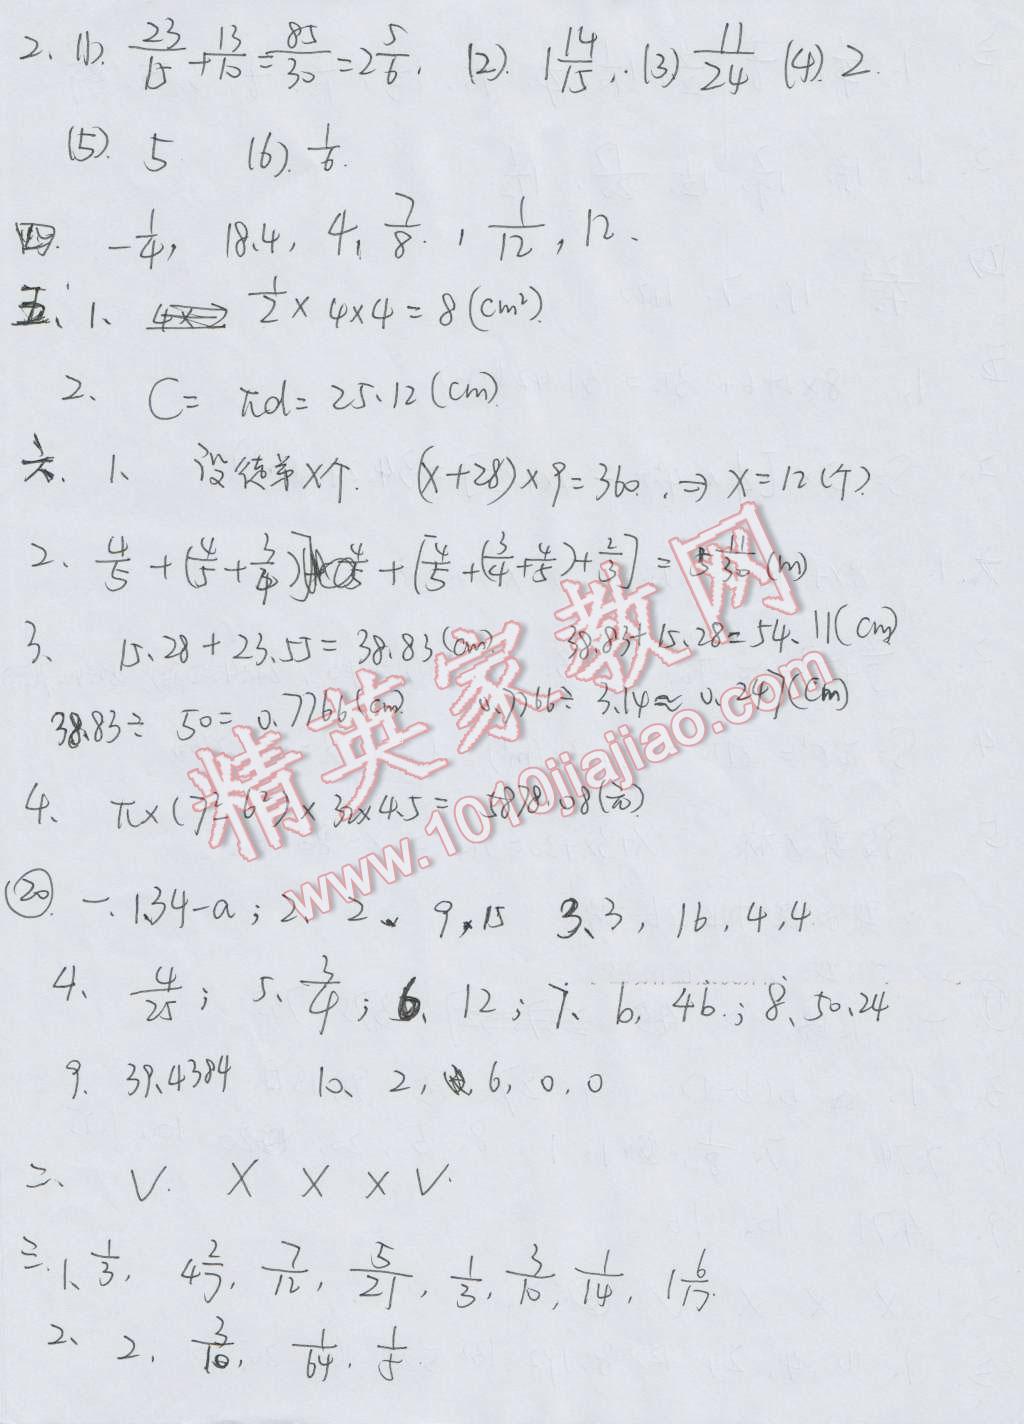 2、(1). 23/15+13/10=85/30=2 5/6. (2). 1 14/15. (3) 11/24 (4). 2.
(5). 5 (6). 1/6.
四. -1/4, 18.4, 4, 7/8, 1/12, 12.
五、1、 1/2×4×4=8(cm²).
2、 C=πd=25.12(cm)
六、1、 设徒弟X个. (X+28)×9=360. ⇒X=12(个)
2、 4/5+(4/5+3/4) 4/5+[4/5+(3/4+4/5)+2/3]=5 11/30(m)
3、 15.28+23.55=38.83(cm) 38.83+15.28=54.11(cm)
38.83÷50=0.7766(cm) 0.7766÷3.14≈0.247(cm)
4、 π×(7²-6²)×32×4.5=5878.08(元)
⑳ 一. 1、34-a; 2、2、9,15 3、3, 16, 4,4
4、4/25; 5、3/4; 6、12; 7、6, 46.; 8、50.24
9. 39.4384 10、2, 6, 0, 0
二、 √. × × × √.
三. 1、1/3, 4 2/7, 7/12, 5/21, 1/3, 3/10, 1/14, 1 6/17
2、 2、 3/10, 1/64, 1/5.
精英家教网
www.1010jiajiao.com